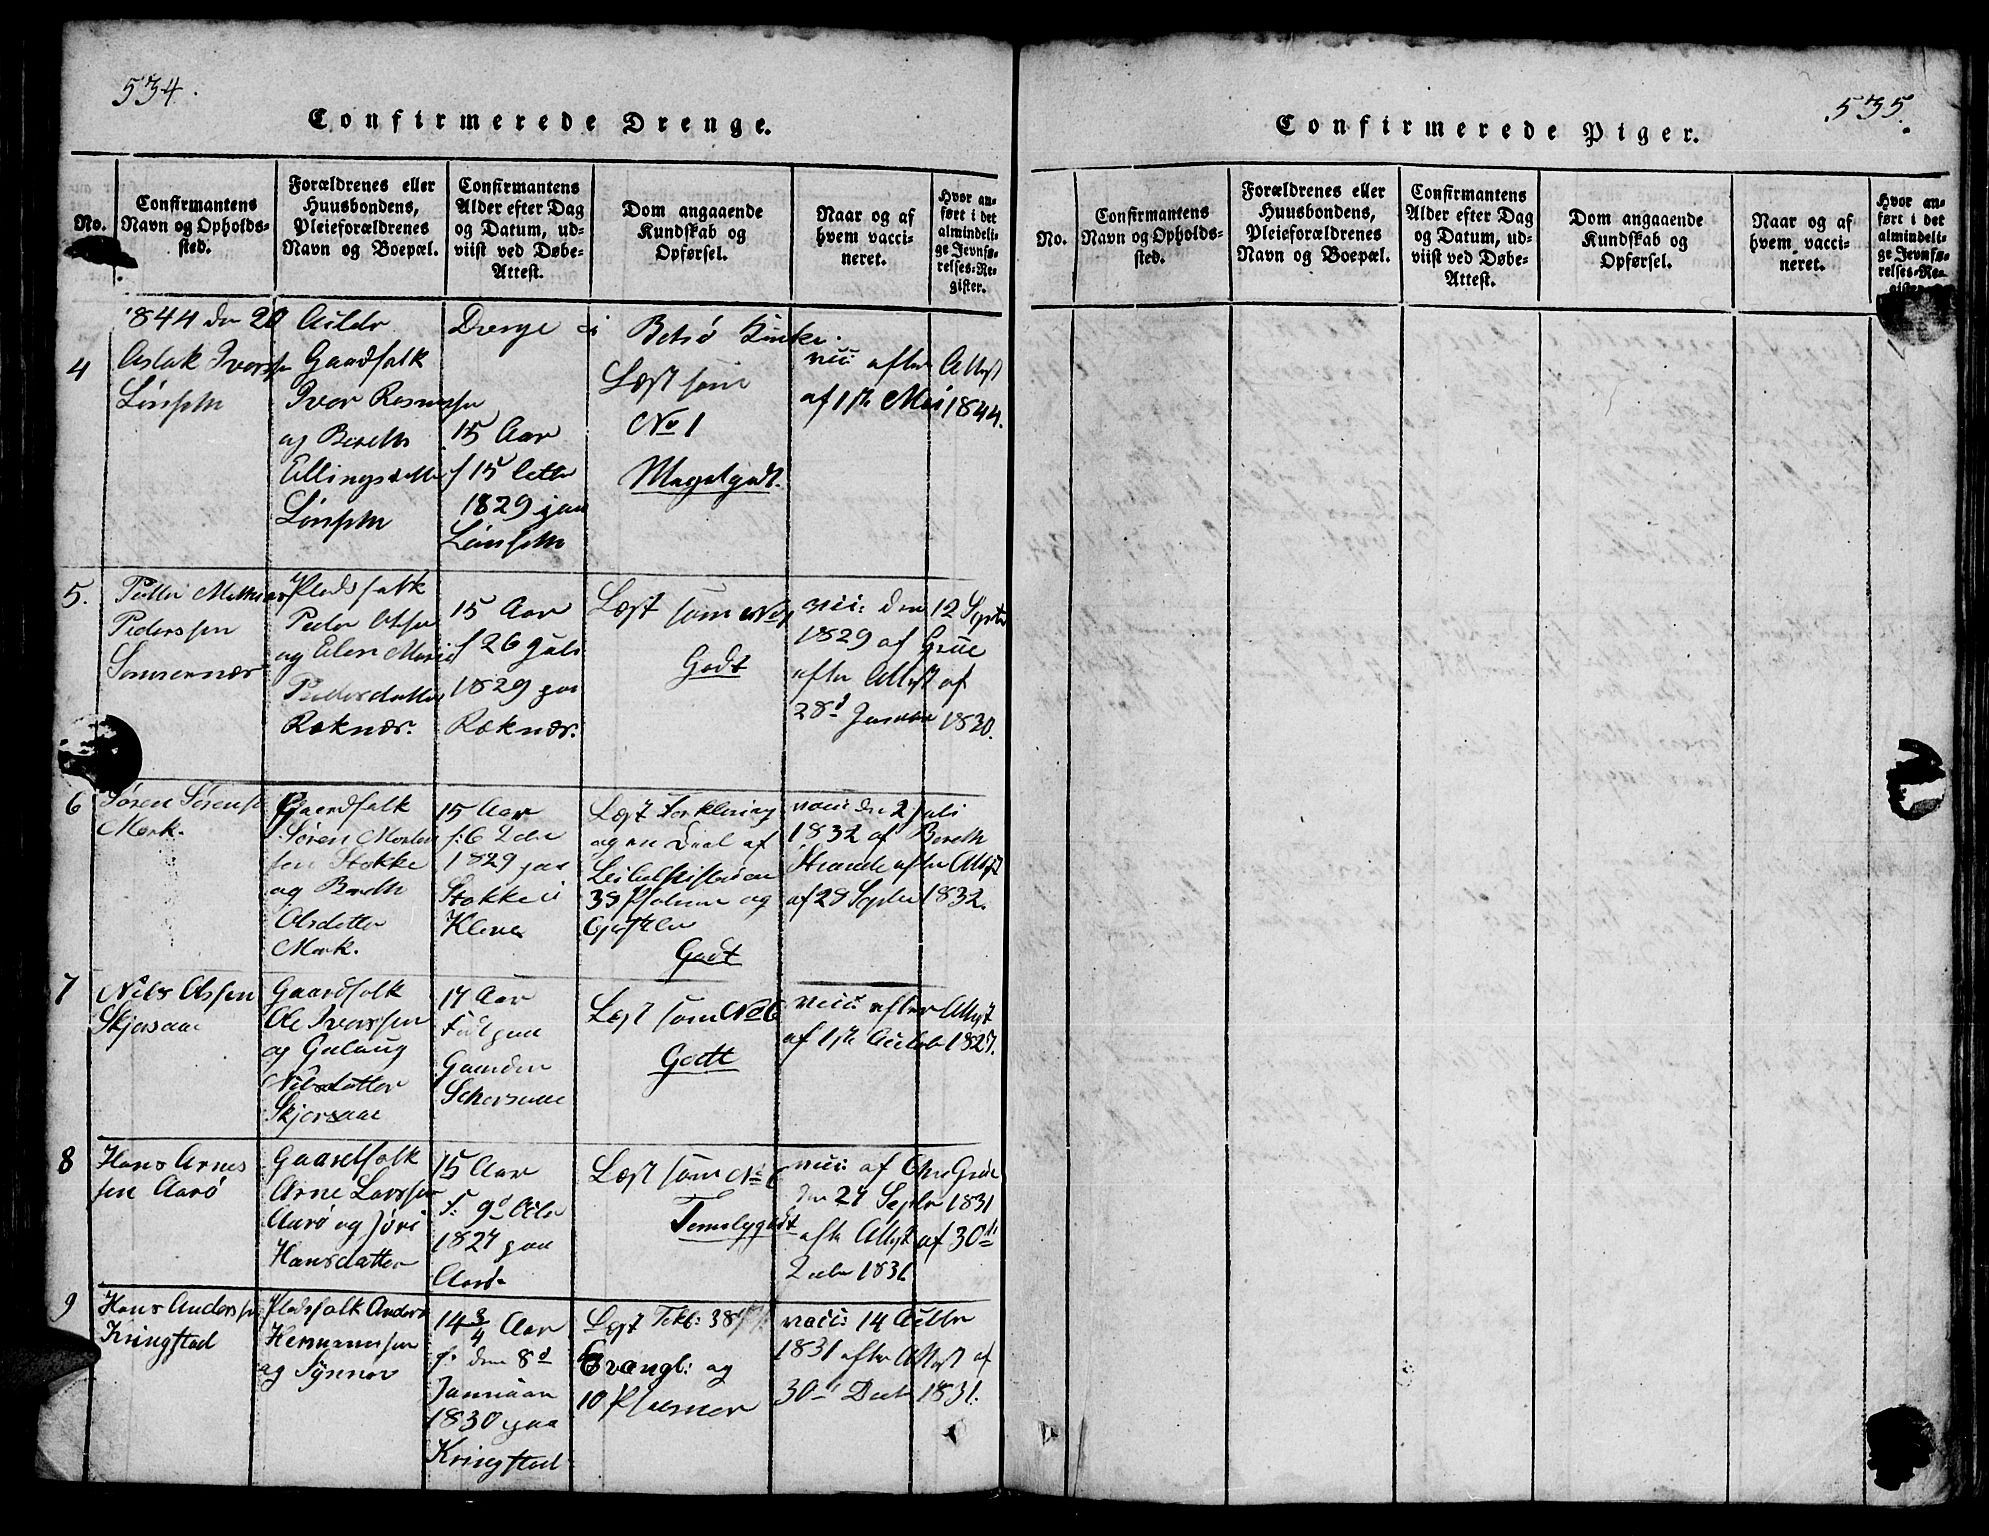 534.
Confirmerede Drenge.
No.
Confirmantens
Navn og Opholds-
sted.
Forældrenes eller
Huusbondens,
Pleieforældrenes
Navn og Boepæl.
Confirmantens
Alder efter Dag
og Datum, ud-
viist ved Døbe-
Attest.
Dom angaaende
Kundskab og
Opførsel.
Naar og af
hvem vacci-
neret.
Hvor an-
ført i det
almindeli-
ge Jevnfø-
relses-Re-
gister.
1844 den 20 Drenge i Bolsø Kirke.
4
Aslak Iversen
Gaardfolk
Iver Rasmussen
og Bereth
Ellingsdatter
15 Aar
1829 paa
Læst som
No 1
Meget godt.
vacc: efter Attest
af 1ste Mai 1844.
5.
Petter Mathias
Pederssen
Sømmernær
Pladsfolk
Peder Olsen
og Elen Marie
Pedersdatter
Røknær.
15 Aar
f 26 Juli
1829 paa
Røknær.
Læst som No 1
Godt
vacc: den 12 Septr
1829 af Grüe
efter Attest af
28d Januar 1830.
6
Søren Sørensen
Mork.
Gaardfolk
Søren
Stokke
og Bereth
Olsdatter
Mork.
15 Aar
1829 paa
Stokke i
Kleve
Læst Forklaring
og en Deel af
og
Godt
vacc: den 2 Juli
1832 af Bereth
Strande efter Attest
af 28 Septbr 1832.
7
Nils Olssen
Skjorsaae
Gaardfolk
Ole Iverssen
og Gulaug
Nilsdatter
Skjorsaae
17 Aar
Læst som No 6
Godt
vacc: efter Attest
af 1ste 1827.
8
Hans Arnes
sen Aarø
Gaardfolk
Arne Larssen
Aarø og Jøri
Hansdatter
15 Aar
1827 paa
Aarø
Læst som No 6
Temelig godt
vacc: af Ole Grüe
den 27 Septbr 1831
efter Attest af 30te
Decbr 1831
9
Hans Anderssen
Kringstad
Pladsfolk Anders
Hermanssen
og Synnøv
14 3/4 Aar
f. den 8d
Januar
1830 paa
Kringstad
Læst
Evangl: og
10 Psalmer
vacc: 14
1831 efter Attest af
30te Decbr 1831.
535.
Confirmerede Piger.
No.
Confirmantens
Navn og Opholds-
sted.
Forældrenes eller
Huusbondens,
Pleieforældrenes
Navn og Boepæl.
Confirmantens
Alder efter Dag
og Datum, ud-
viist ved Døbe-
Attest.
Dom angaaende
Kundskab og
Opførsel.
Naar og af
hvem vacci-
neret.
Hvor an-
ført i det
almindeli-
ge Jevnfø-
relses-Re-
gister.